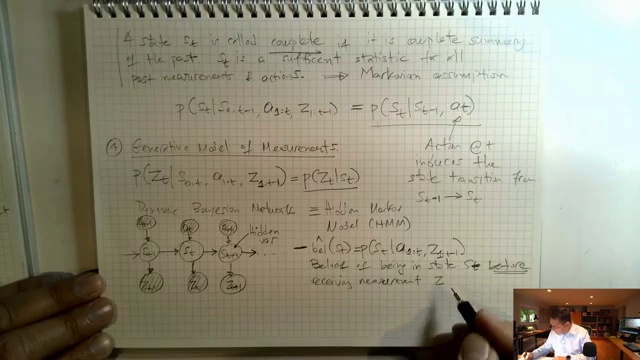 A state St is called complete if it is complete summary
of the past St is a sufficient statistic for all
past measurements & actions. → Markovian assumption
p(St|S0:t-1, a1:t, Z1:t-1) = p(St|St-1, at)
Action @ t
induces the
state transition from
St-1 → St
④ Generative Model of Measurements
p(Zt|S0:t, a1:t, Z1:t-1) = p(Zt|St)
Dynamic Bayesian Network ≡ Hidden Markov
Model (HMM)
at-1 at at+1
Hidden
var
St-1 St St+1 ...
Zt-1 Zt Zt+1
bel(St) = p(St|a1:t, Z1:t-1)
Belief of being in state St before
receiving measurement Z